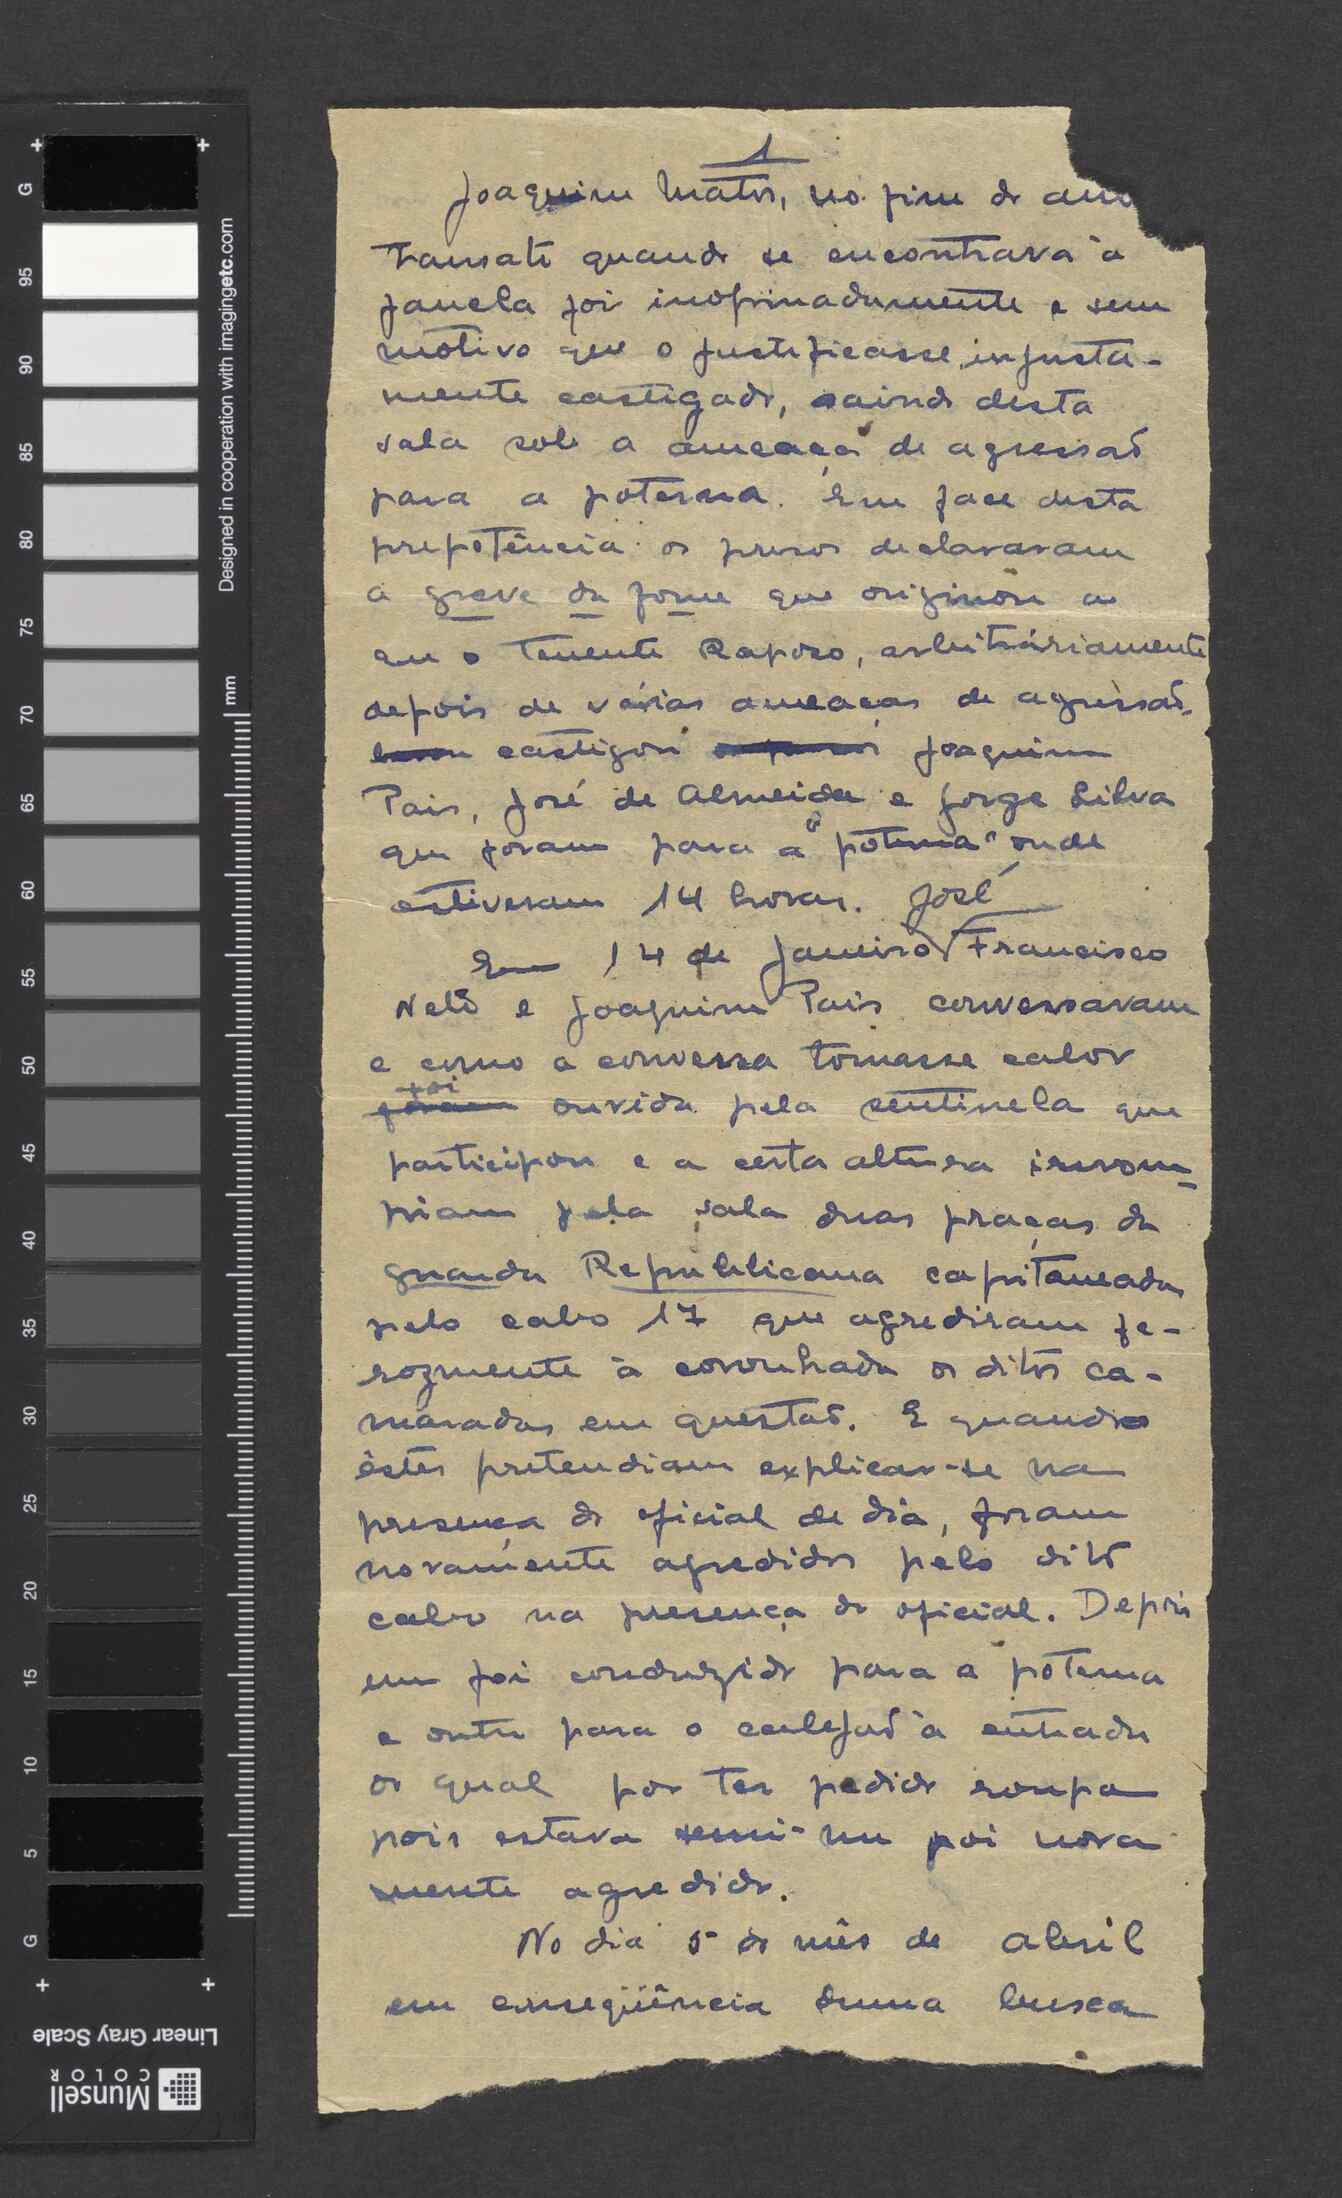 1
Joaquim Matos, no fim do ano
transato quando se encontrava à
janela foi inopinadamente e sem
motivo que o justificasse, injusta-
mente castigado, saindo desta
sala sob a ameaça de agressão
para a poterna. Em face desta
prepotência os presos declararam
a greve da fome que originou a
que o Tenente Raposo, arbitráriamente
depois de várias ameaças de agressão,
castigou Joaquim
Pais, José de Almeida e Jorge Silva
que foram para a "poterna" onde
estiveram 14 horas. José
Em 14 de Janeiro Francisco
Neto e Joaquim Pais conversavam
e como a conversa tomasse calor
foi
foram ouvida pela sentinela que
participou e a certa altura irrom-
piam pela sala duas praças da
guarda Republicana capitaneadas
pelo cabo 17 que agrediram fe-
rozmente à coronhada os ditos ca-
maradas em questão. E quando
êstes pretendiam explicar-se na
presença do oficial de dia, foram
novamente agredidos pelo dito
cabo na presença do oficial. Depois
um foi conduzido para a poterna
e outro para o calejão à entrada
o qual por ter pedido roupa
pois estava semi-nu foi nova
mente agredido.
No dia 5 do mês de abril
em conseqüência duma busca
Designed in cooperation with imagingetc.com
mm
G
95
90
85
80
75
70
65
60
55
50
45
40
35
30
25
20
15
10
5
G
Linear Gray Scale
Munsell
COLOR